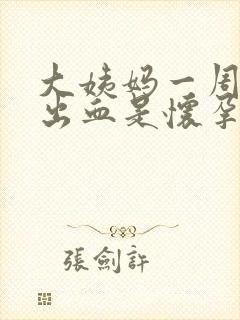 大姨妈一周
出血是懷孕
張劍許